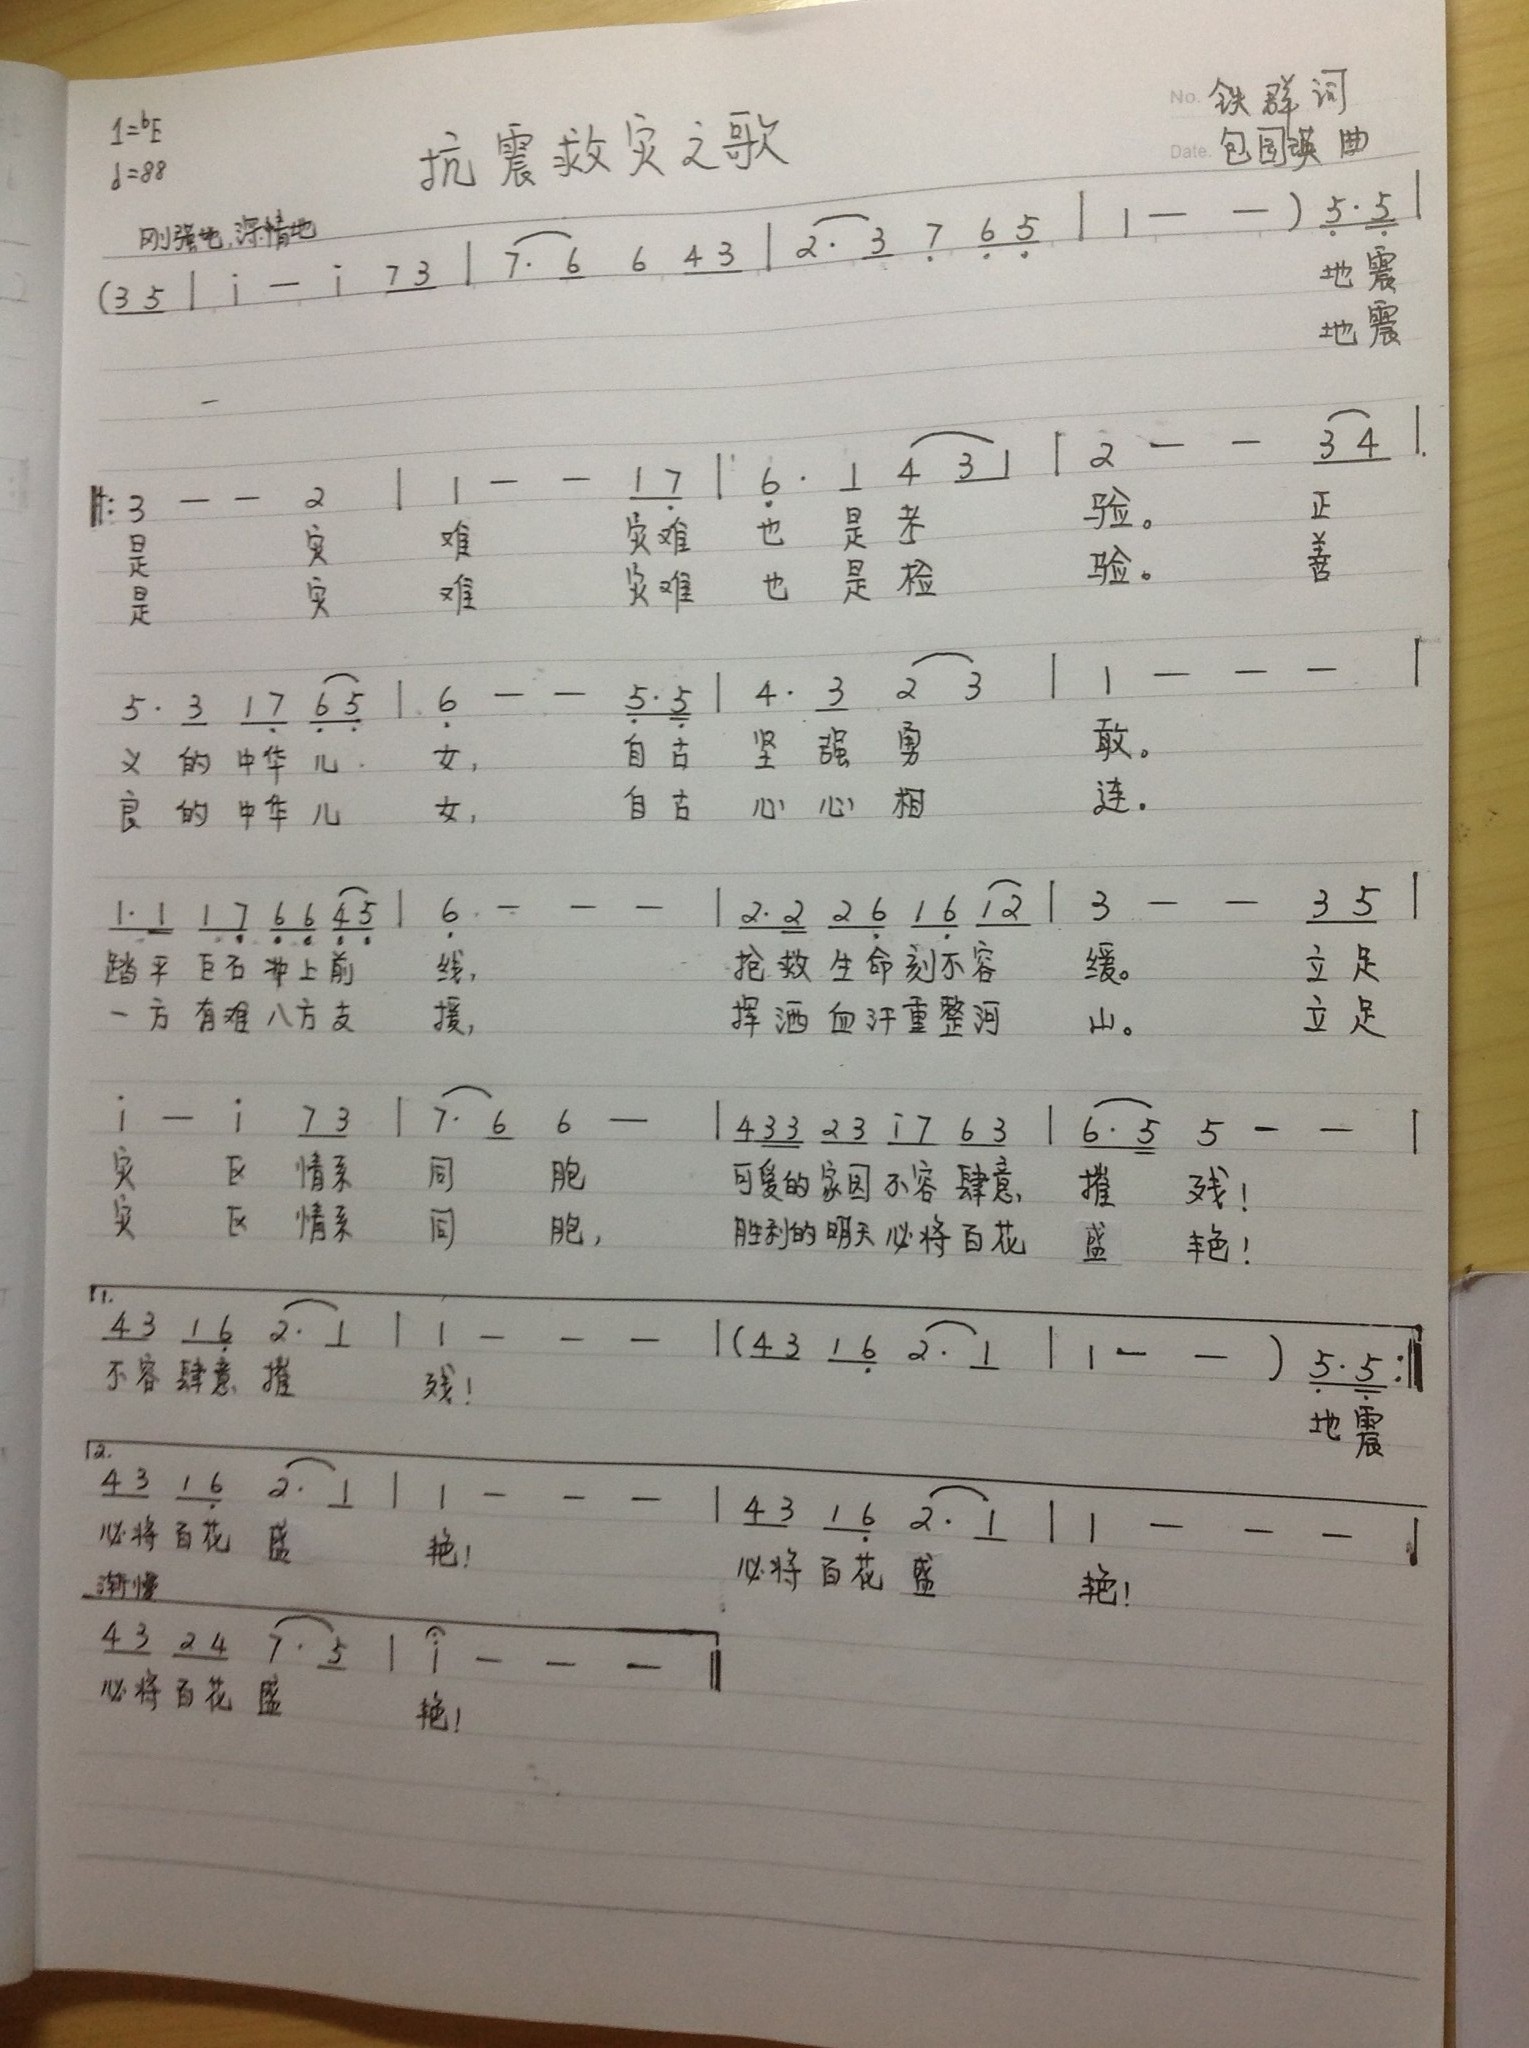 No. 铁群词
1=ᵇE
抗震救灾之歌
Date. 包国瑛 曲
♩=88
刚强地、深情地
(3 5 | i — i 7 3 | 7· 6 6 4 3 | 2· 3 7 6 5 | 1 — — ) 5·5 |
地震
地震
‖: 3 — — 2 | 1 — — 1 7 | 6· 1 4 3 1 | 2 — — 3 4 |
是 灾 难 灾难 也 是 考 验。 正
是 灾 难 灾难 也 是 检 验。 善
5· 3 1 7 6 5 | 6 — — 5·5 | 4· 3 2 3 | 1 — — — |
义 的 中华 儿 女, 自古 坚 强 勇 敢。
良 的 中华 儿 女, 自古 心 心 相 连.
1·1 1 7 6 6 4 5 | 6 — — — | 2·2 2 6 1 6 1 2 | 3 — — 3 5 |
踏平 巨石 冲上前 线, 抢救 生命 刻不容 缓。 立足
一方 有难 八方支 援, 挥洒 血汗 重整河 山。 立足
i — i 7 3 | 7· 6 6 — | 4 3 3 2 3 i 7 6 3 | 6·5 5 — — |
灾 区 情系 同 胞 可爱的 家园 不容 肆意 摧 残!
灾 区 情系 同 胞, 胜利的 明天 必将 百花 盛 艳!
1.
4 3 1 6 2· 1 | 1 — — — | (4 3 1 6 2· 1 | 1 — — ) 5·5 :‖
不容 肆意 摧 残!
地震
2.
4 3 1 6 2· 1 | 1 — — — | 4 3 1 6 2· 1 | 1 — — — |
必将 百花 盛 艳! 必将 百花 盛 艳!
渐慢
4 3 2 4 7· 5 | i — — — ‖
必将 百花 盛 艳!